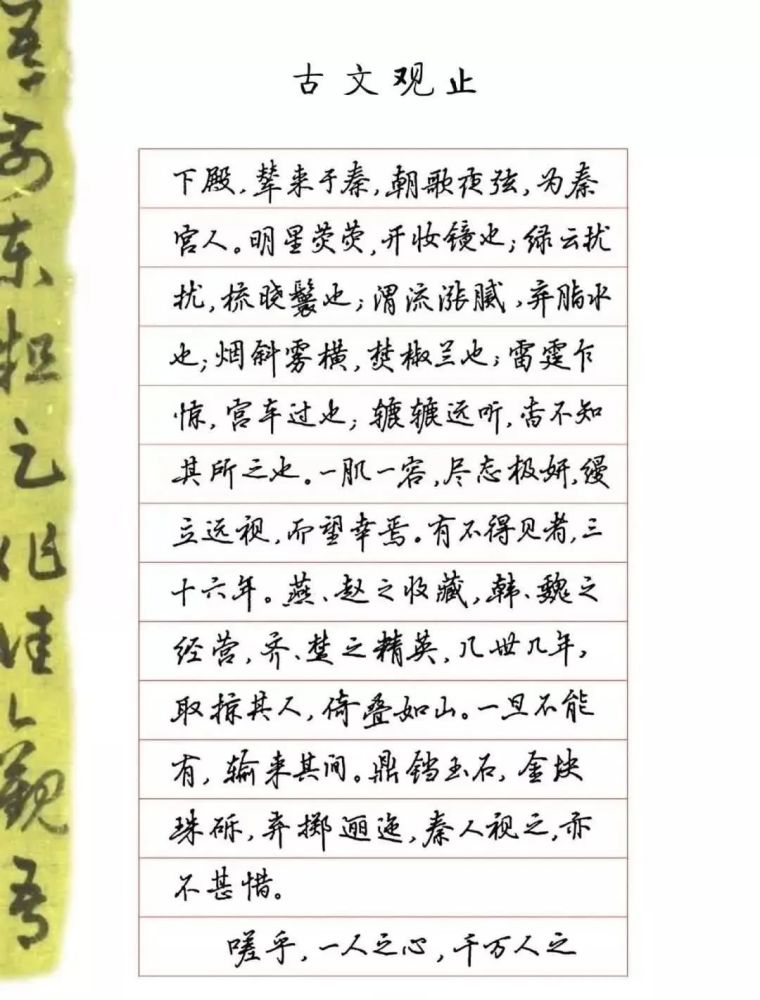 古文观止
下殿，辇来于秦，朝歌夜弦，为秦
宫人。明星荧荧，开妆镜也；绿云扰
扰，梳晓鬟也；渭流涨腻，弃脂水
也；烟斜雾横，焚椒兰也；雷霆乍
惊，宫车过也；辘辘远听，杳不知
其所之也。一肌一容，尽态极妍，缦
立远视，而望幸焉。有不得见者，三
十六年。燕、赵之收藏，韩、魏之
经营，齐、楚之精英，几世几年，
取掠其人，倚叠如山。一旦不能
有，输来其间。鼎铛玉石，金块
珠砾，弃掷逦迤，秦人视之，亦
不甚惜。
嗟乎，一人之心，千万人之